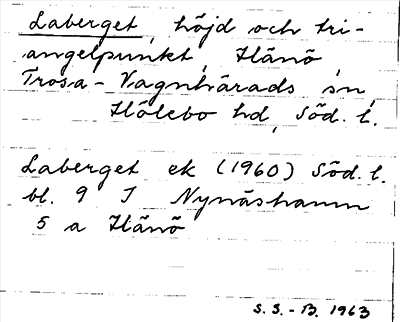 Laberget, höjd och tri-
angelpunkt, Hänö,
Trosa-Vagnhärads sn,
Hölebo hd, Söd. l.
Laberget ek (1960) Söd. l.
bl. 9 I Nynäshamn
5 a Hänö
S. S. - B. 1963